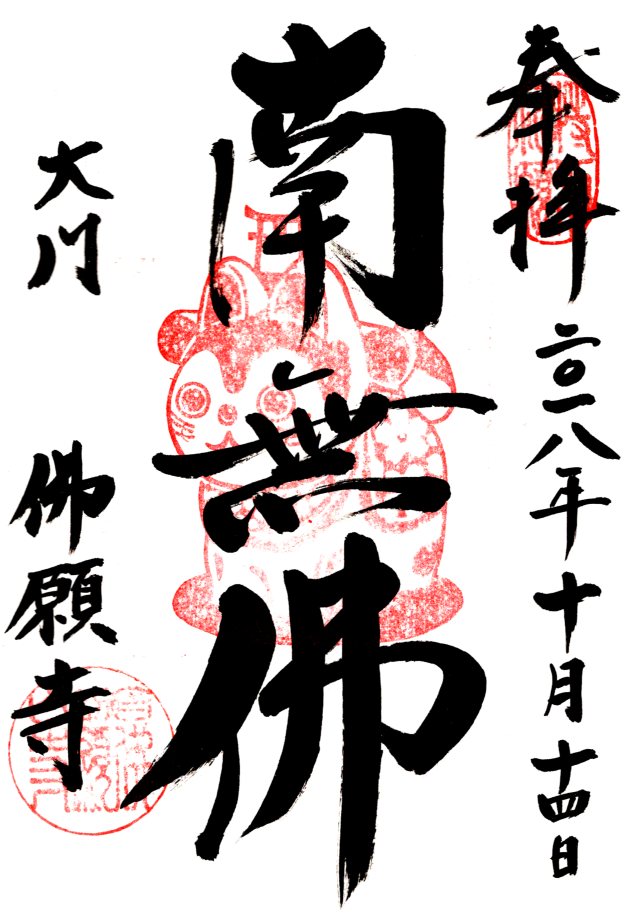 奉拝
二〇一八年十月十四日
南無佛
大川
佛願寺